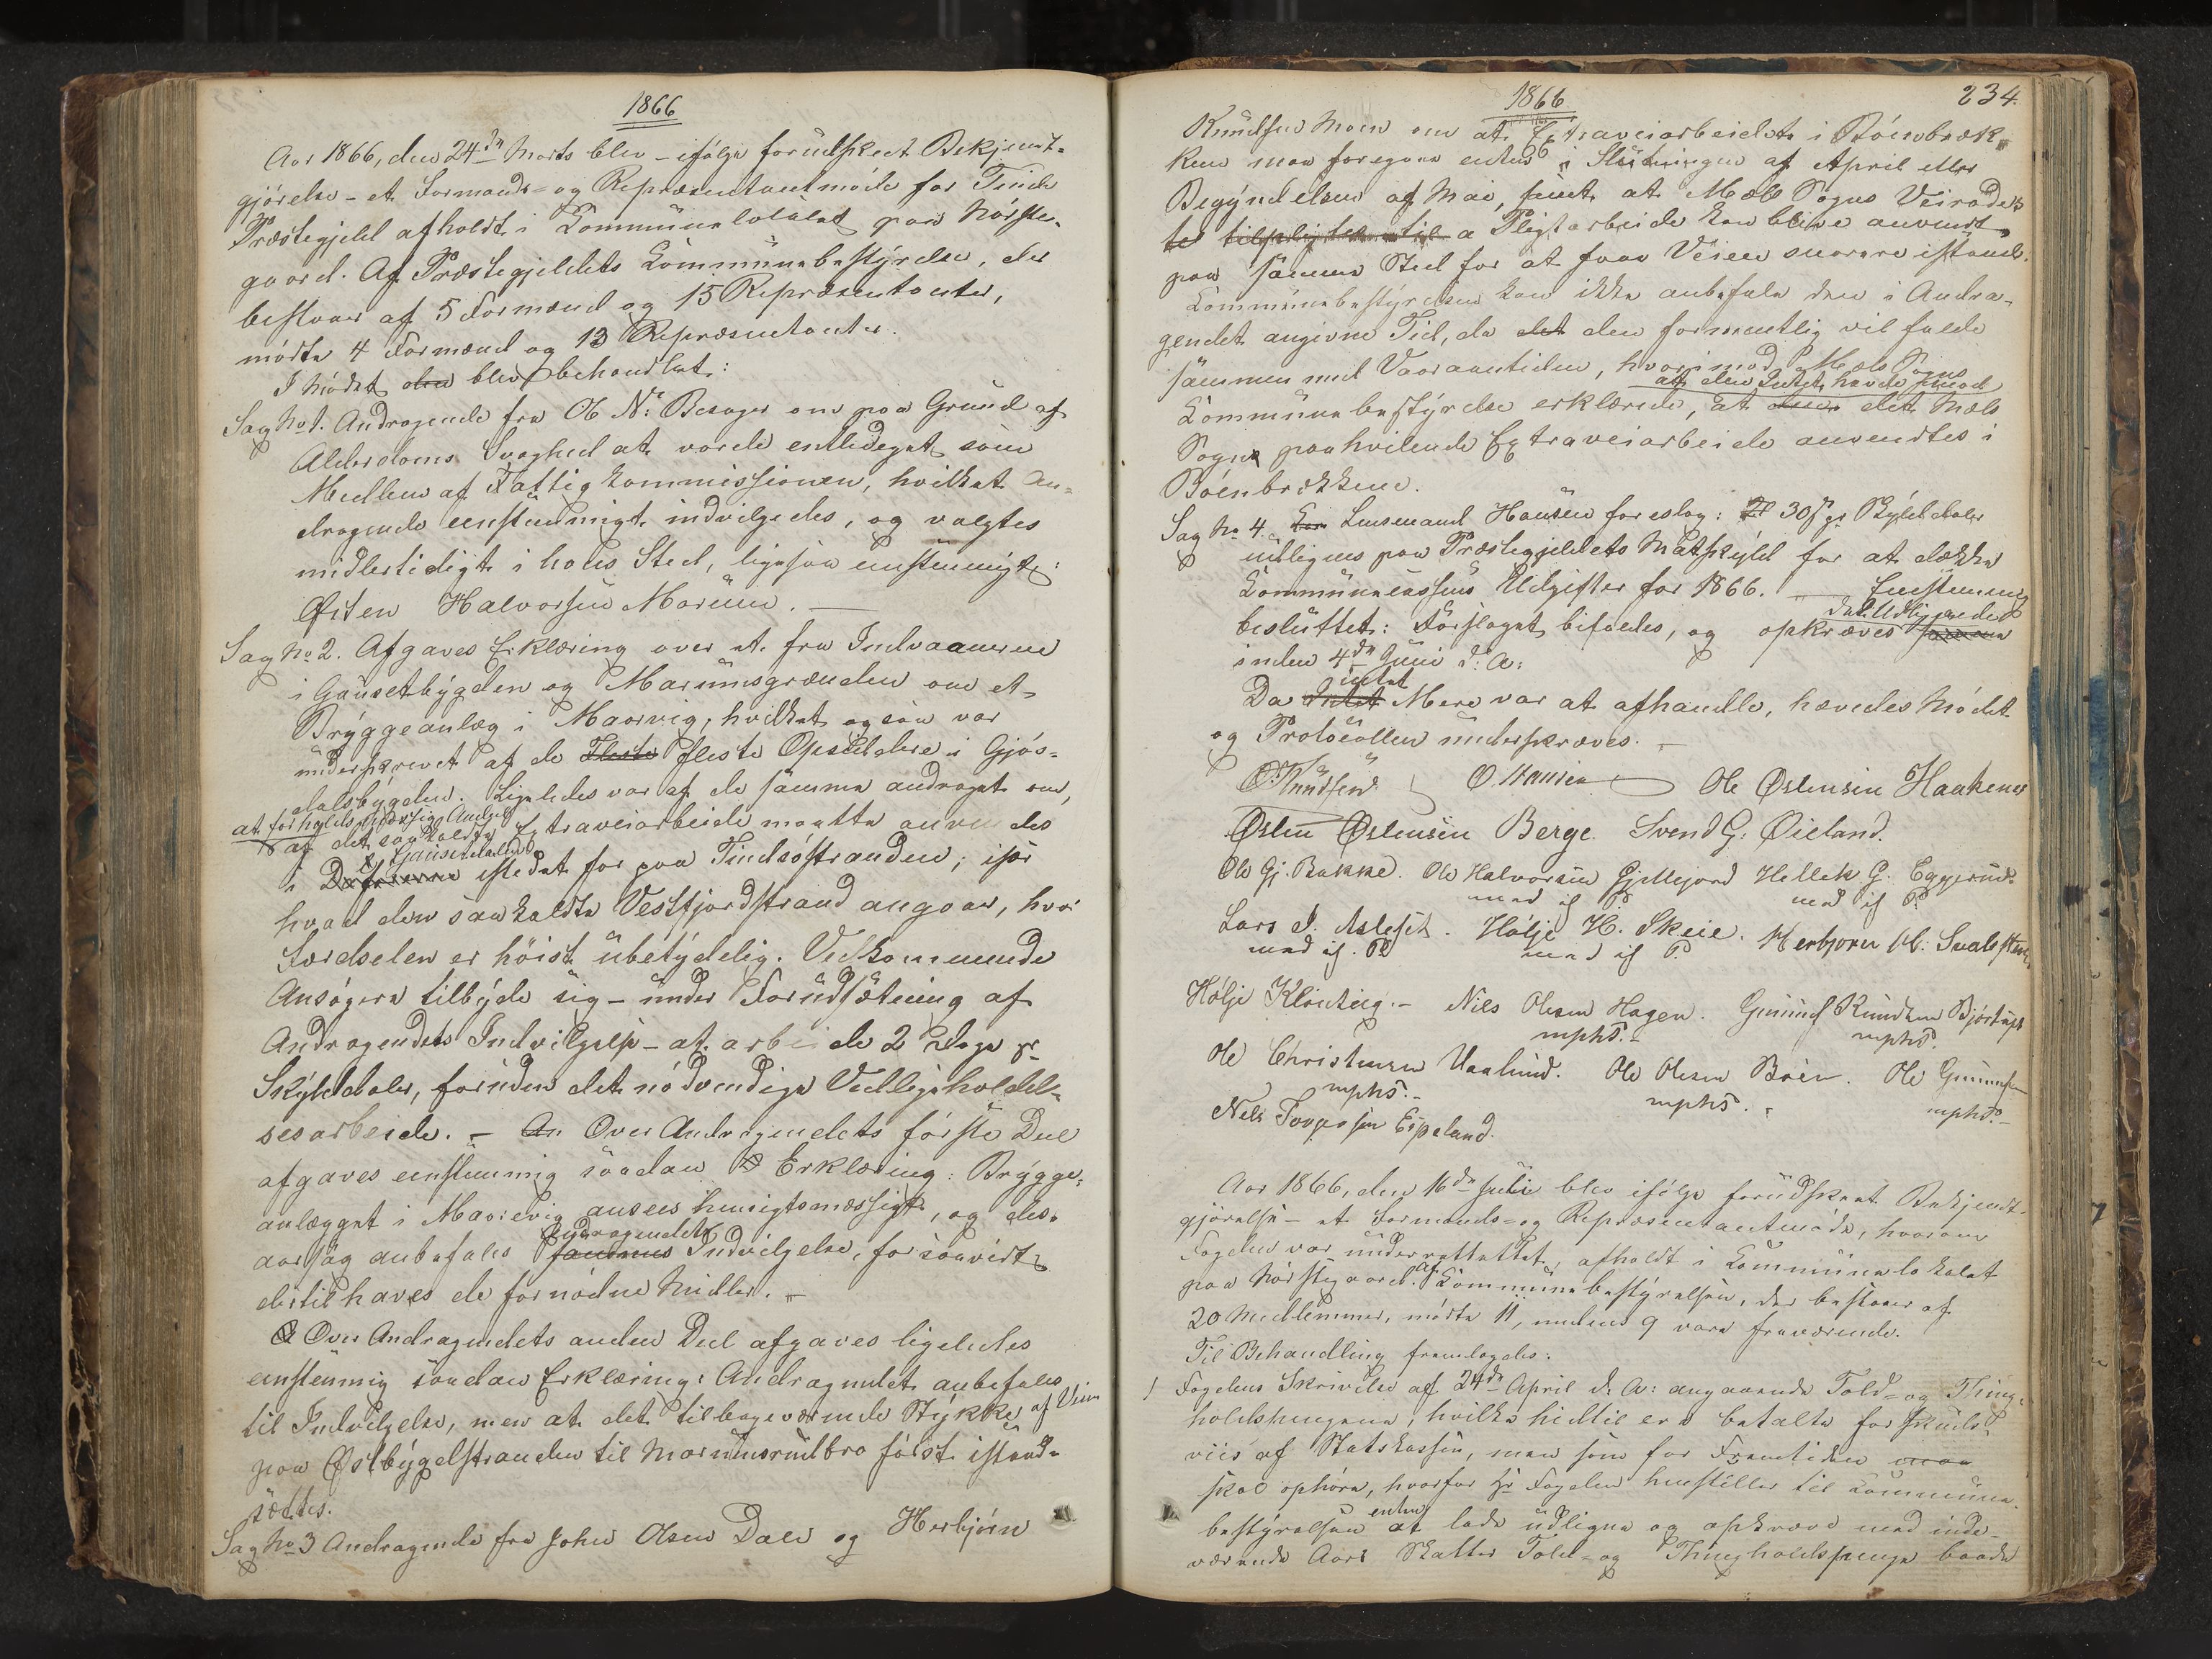 1866
Aar 1866, den 24de Marts blev – ifølge forudskeet Bekjendt-
gjørelse – et Formands- og Repræsentantmøde for Tinds
Præstegjeld afholdt i Kommunelokalet paa Mørste-
gaard. Af Præstegjeldets Kommunebestyrelse, der
bestaaer af 5 Formænd og 15 Repræsentanter,
mødte 4 Formænd og 13 Repræsentanter.
I Mødet blev behandlet:
Sag No 1. Andragende fra Ole N: Besager om paa Grund af
Alderdoms Svaghed at vorde entlediget som
Medlem af Fattigkommissionen, hvilket An-
dragende eenstemmigt indvilgedes, og valgtes
midlertidigt i hans Sted, ligesaa eenstemmigt:
Østen Halvorsen Marum. –
Sag No 2. Afgaves Erklæring over et fra Indvaanerne
i Gausetbygden og Marumsgrænden om et
Bryggeanlæg i Maarvig, hvilket ogsaa var
underskrevet af de Fleste fleste Opsiddere i Gjøs-
dalsbygden. Ligeledes var af de samme andraget om,
at forholdsmæssig Andeel
af det saakaldte Extraveiarbeide maatte anvendes
Gausetdalen
i istedet for paa Tindsøstranden; især
hvad den saakaldte Vestfjordstrand angaar, hvor
Færdselen er høist ubetydelig. Vedkommende
Ansøgere tilbyde sig – under Forudsætning af
Andragendets Indvilgelse – at arbeide 2 Dage pr
Skylddaler, foruden det nødvendige Vedligeholdel-
sesarbeide. – An Over Andragendets første Deel
afgaves eenstemmig saadan Erklæring: Brygge-
anlægget i Maarvig ansees hensigtsmæssigt, og des-
Andragendets
aarsag anbefales sammes Indvilgelse, forsaavidt
dertil haves de fornødne Midler. –
Over Andragendets anden Deel afgaves ligeledes
eenstemmig saadan Erklæring: Andragendet anbefales
til Indvilgelse, men at det tilbageværende Stykke af Veien
paa Østbygdstranden til Marumsrudbro først istand-
sættes.
Sag No 3 Andragende fra John Olsen Dale og Herbjørn
1866
234.
Knudsen Moen om at Extraveiarbeidet i Bøenbrek-
ken maa foregaae enten i Slutningen af April eller
Begyndelsen af Mai, samt at Mæls Sogns Veirode-
Pligtarbeide kan blive anvendt
paa samme Sted for at faae Veien snarere istand.
Kommunebestyrelsen kan ikke anbefale den i Andra-
gendet angivne Tid, da det den formentlig vil falde
sammen med Vaaraantiden, hvorimod Mæls Sogns
at den Intet havde imod
Kommunebestyrelse erklærede, at det Mæls
Sogn paahvilende Extraveiarbeide anvendtes i
Bøenbrekkene.
Sag No 4. Lensmand Hansen foreslog: 30 s pr Skylddaler
udlignes paa Præstegjeldets Matskyld for at dække
Kommunecassens Udgifter for 1866. Eenstemmig
det Udlignede
besluttet: Forslaget bifaldes, og opkræves
inden 4de Juni d: A:
intet
Da Intet Mere var at afhandle, hævedes Mødet
og Protocollen underskreves. –
O. Knudsen O. Hansen Ole Østensen Haakenes
Østen Østensen Berge. Svend G: Øieland.
Ole Gj. Bakke. Ole Halvorsen Gjellejord Hellek G. Eggerud.
med if P. med if P.
Lars J. Aslesit. Hølje H. Skeie. Herbjørn H:
med if. P. med if P.
Hølje Klonteig. – Nils Olesen Hagen. Gunnuf Knudsen Bjørtuft
mphP. – mphP.
Ole Christensen Vaalund. Ole Olsen Bøen. Ole Gunnufsen
mphP. – mphP. mphP. –
Nels Torgersen Espeland.
Aar 1866, den 16de Juli blev ifølge forudskeet Bekjendt-
gjørelse – et Formands- og Repræsentantmøde, hvorom
Fogden var underrettet, afholdt i Kommunelokalet
paa Mørstegaard. Af Kommunebestyrelsen, der bestaaer af
20 Medlemmer, mødte 11, medens 9 vare fraværende.
Til Behandling fremlagdes:
1 Fogdens Skrivelse af 24de April d: A: angaaende Told- og Thing-
holdspengene, hvilke hidtil ere betalte forskuds-
viis af Statskassen, men som for Fremtiden
skal ophøre, hvorfor Hr Fogden henstiller til Kommune-
enten
bestyrelsen at lade udligne og opkræve med inde-
værende Aars Skatter Told- og Thingholdspenge baade